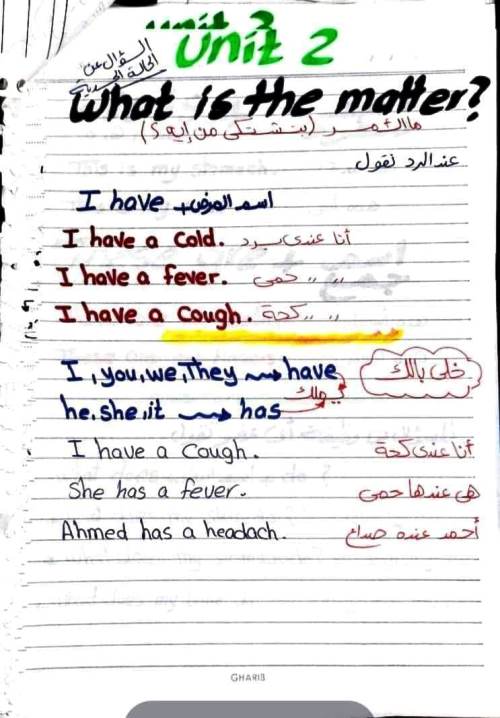 Unit 2
السؤال عن
الحالة الصحية
What is the matter?
ما الأمر (بتشتكى من إيه؟)
عند الرد نقول
I have + اسم المرض
I have a cold. أنا عندى برد
I have a fever. " " حمى
I have a cough. " " كحة
I, you, we, They → have خلى بالك
he, she, it → has يملك
I have a cough. أنا عندى كحة
She has a fever. هى عندها حمى
Ahmed has a headach. أحمد عنده صداع
GHARIB